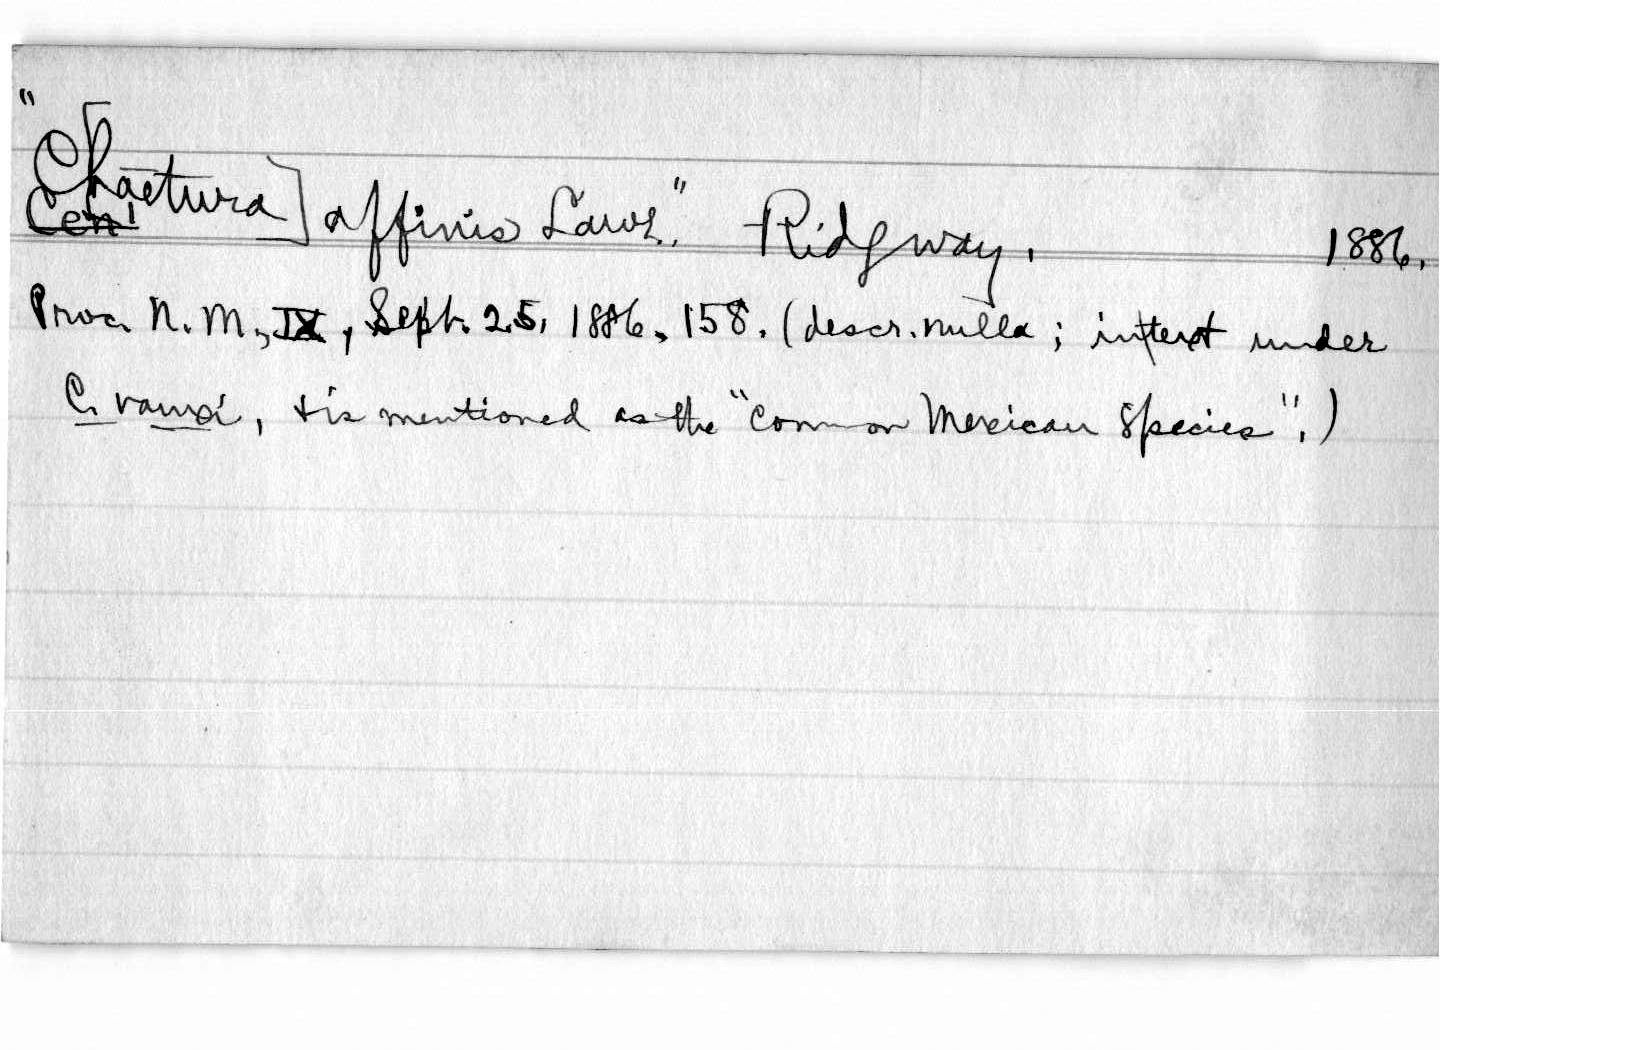 "C[haetura] affinis Lawr." Ridgway. 1886.
Cen!
Proc. N. M., IX, Sept. 25, 1886, 158. (descr. nulla; in text under
C. vauxi, & is mentioned as the "Common Mexican Species".)